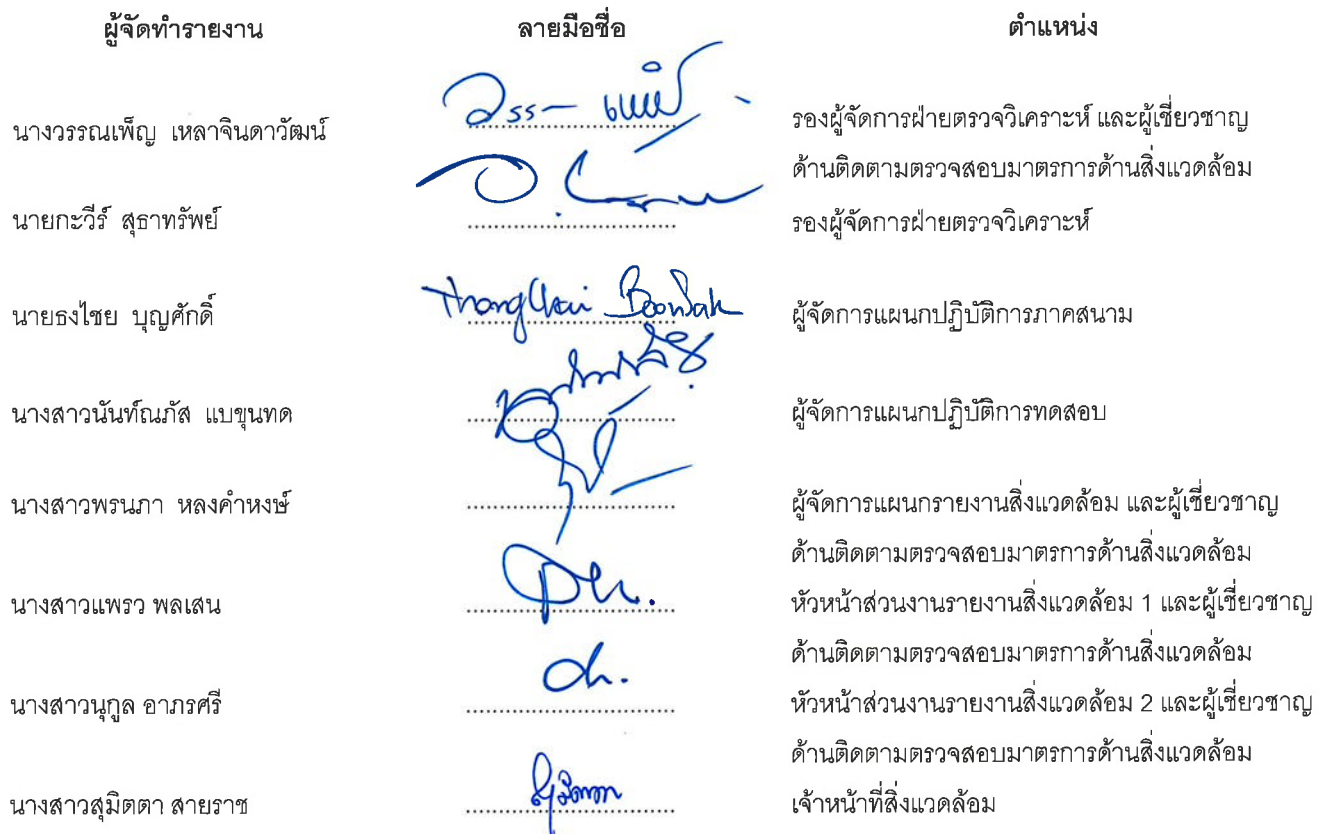 ผู้จัดทำรายงาน ลายมือชื่อ ตำแหน่ง
นางวรรณเพ็ญ เหลาจินดาวัฒน์ รองผู้จัดการฝ่ายตรวจวิเคราะห์ และผู้เชี่ยวชาญ
ด้านติดตามตรวจสอบมาตรการด้านสิ่งแวดล้อม
นายกะวีร์ สุธาทรัพย์ รองผู้จัดการฝ่ายตรวจวิเคราะห์
นายธงไชย บุญศักดิ์ ผู้จัดการแผนกปฏิบัติการภาคสนาม
นางสาวนันท์ณภัส แบขุนทด ผู้จัดการแผนกปฏิบัติการทดสอบ
นางสาวพรนภา หลงคำหงษ์ ผู้จัดการแผนกรายงานสิ่งแวดล้อม และผู้เชี่ยวชาญ
ด้านติดตามตรวจสอบมาตรการด้านสิ่งแวดล้อม
นางสาวแพรว พลเสน หัวหน้าส่วนงานรายงานสิ่งแวดล้อม 1 และผู้เชี่ยวชาญ
ด้านติดตามตรวจสอบมาตรการด้านสิ่งแวดล้อม
นางสาวนุกูล อาภรศรี หัวหน้าส่วนงานรายงานสิ่งแวดล้อม 2 และผู้เชี่ยวชาญ
ด้านติดตามตรวจสอบมาตรการด้านสิ่งแวดล้อม
นางสาวสุมิตตา สายราช เจ้าหน้าที่สิ่งแวดล้อม